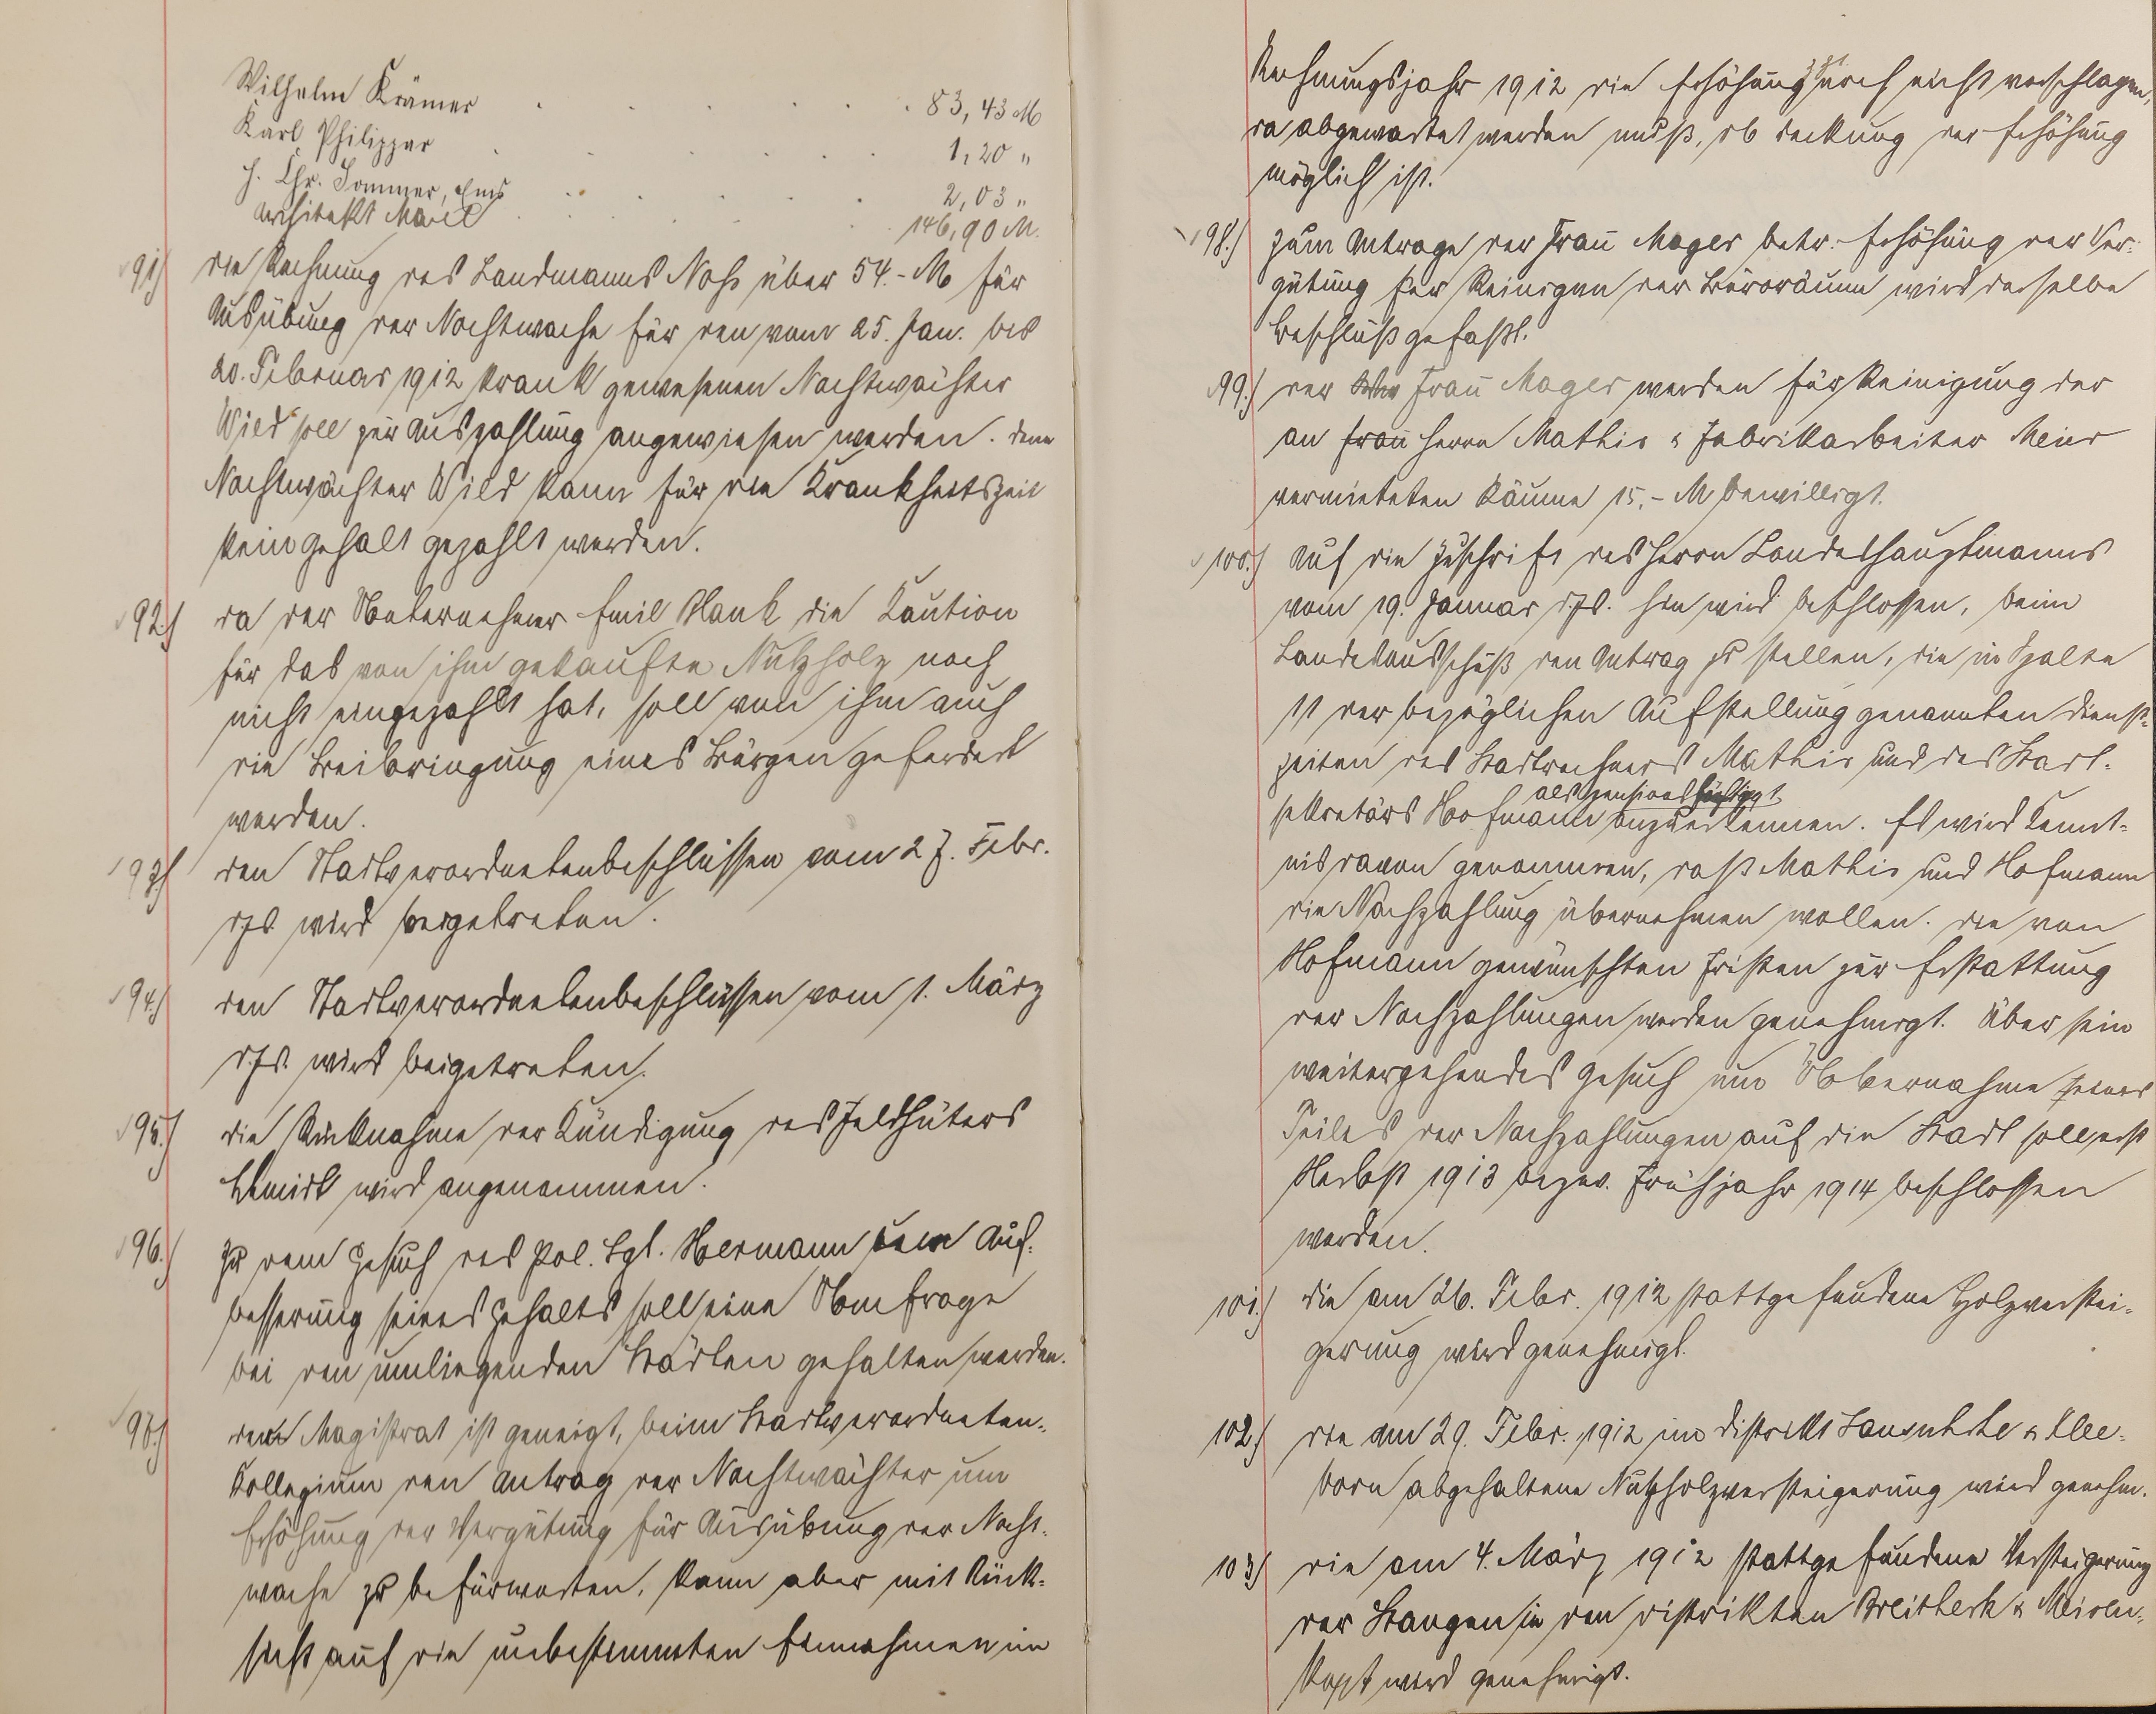 Wilhelm Krämer . . . . . . 83,43 M
Karl Philippar . . . . . . 1,20 "
H. Chr. Sommer, Ems . . . . . 2,03 "
Architekt Maxel . . . . . 146,90 M.
91.) Die Rechnung des Landmanns Nohs über 54.- M für
Ausübung der Nachtwache für den vom 25. Jan. bis
20. Februar 1912 krank gewesenen Nachtwächter
Wild soll zur Auszahlung angewiesen werden. Dem
Nachtwächter Wild kann für die Krankheitszeit
kein Gehalt gezahlt werden.
92.) Da der Unternehmer Emil Plank die Kaution
für das von ihm gekaufte Nutzholz noch
nicht eingezahlt hat, soll von ihm auch
die Beibringung eines Bürgen gefordert
werden.
93.) Den Stadtverordnetenbeschlüssen vom 27. Febr.
d.Js. wird beigetreten.
94.) Den Stadtverordnetenbeschlüssen vom 1. März
d.Js. wird beigetreten.
95.) Die Rücknahme der Kündigung des Feldhüters
Schmidt wird angenommen.
96.) Zu dem Gesuch des Pol. Sgt. Hermann um Auf-
besserung seines Gehalts soll eine Umfrage
bei den umliegenden Städten gehalten werden.
97.) Der Magistrat ist geneigt, beim Stadtverordneten-
Kollegium den Antrag der Nachtwächter um
Erhöhung der Vergütung für Ausübung der Nacht-
wache zu befürworten, kann aber mit Rück-
sicht auf die unbestimmten Einnahmen im
Rechnungsjahr 1912 die Erhöhung zzt. noch nicht vorschlagen,
da abgewartet werden muß, ob Deckung der Erhöhung
möglich ist.
98.) Zum Antrage der Frau Mager betr. Erhöhung der Ver-
gütung für Reinigen der Büroräume wird derselbe
Beschluß gefaßt.
99.) Der Frau Mager werden für Reinigung der
an Frau Herrn Mathis & Fabrikarbeiter Meier
vermieteten Räume 15,- M bewilligt.
100.) Auf die Zuschrift des Herrn Landeshauptmanns
vom 19. Januar d.Js. hin wird beschlossen, beim
Landesausschuß den Antrag zu stellen, die in Spalte
11 der bezüglichen Aufstellung genannten Dienst-
zeiten des Stadtrechners Mathis und des Stadt-
als pensionsfähig
sekretärs Hofmann anzuerkennen. Es wird Kennt-
nis davon genommen, daß Mathis und Hofmann
die Nachzahlung übernehmen wollen. Die von
Hofmann gewünschten Fristen zur Erstattung
der Nachzahlungen werden genehmigt. Über sein
weitergehendes Gesuch um Übernahme seines
Teiles der Nachzahlungen auf die Stadt soll erst
Herbst 1913 bezw. Frühjahr 1914 beschlossen
werden.
101.) Die am 26. Febr. 1912 stattgefundene Holzverstei-
gerung wird genehmigt.
102.) Die am 29. Febr. 1912 im Distrikt & Klee-
born abgehaltene Nutzholzversteigerung wird genehm.
103.) Die am 4. März 1912 stattgefundene Versteigerung
der Stangen in den Distrikten Breitheck &
wird genehmigt.